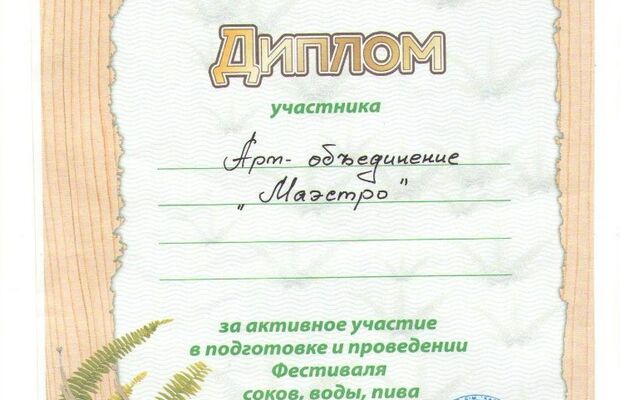 Диплом
участника
Арт- объединение
„Маэстро"
за активное участие
в подготовке и проведении
Фестиваля
соков, воды, пива